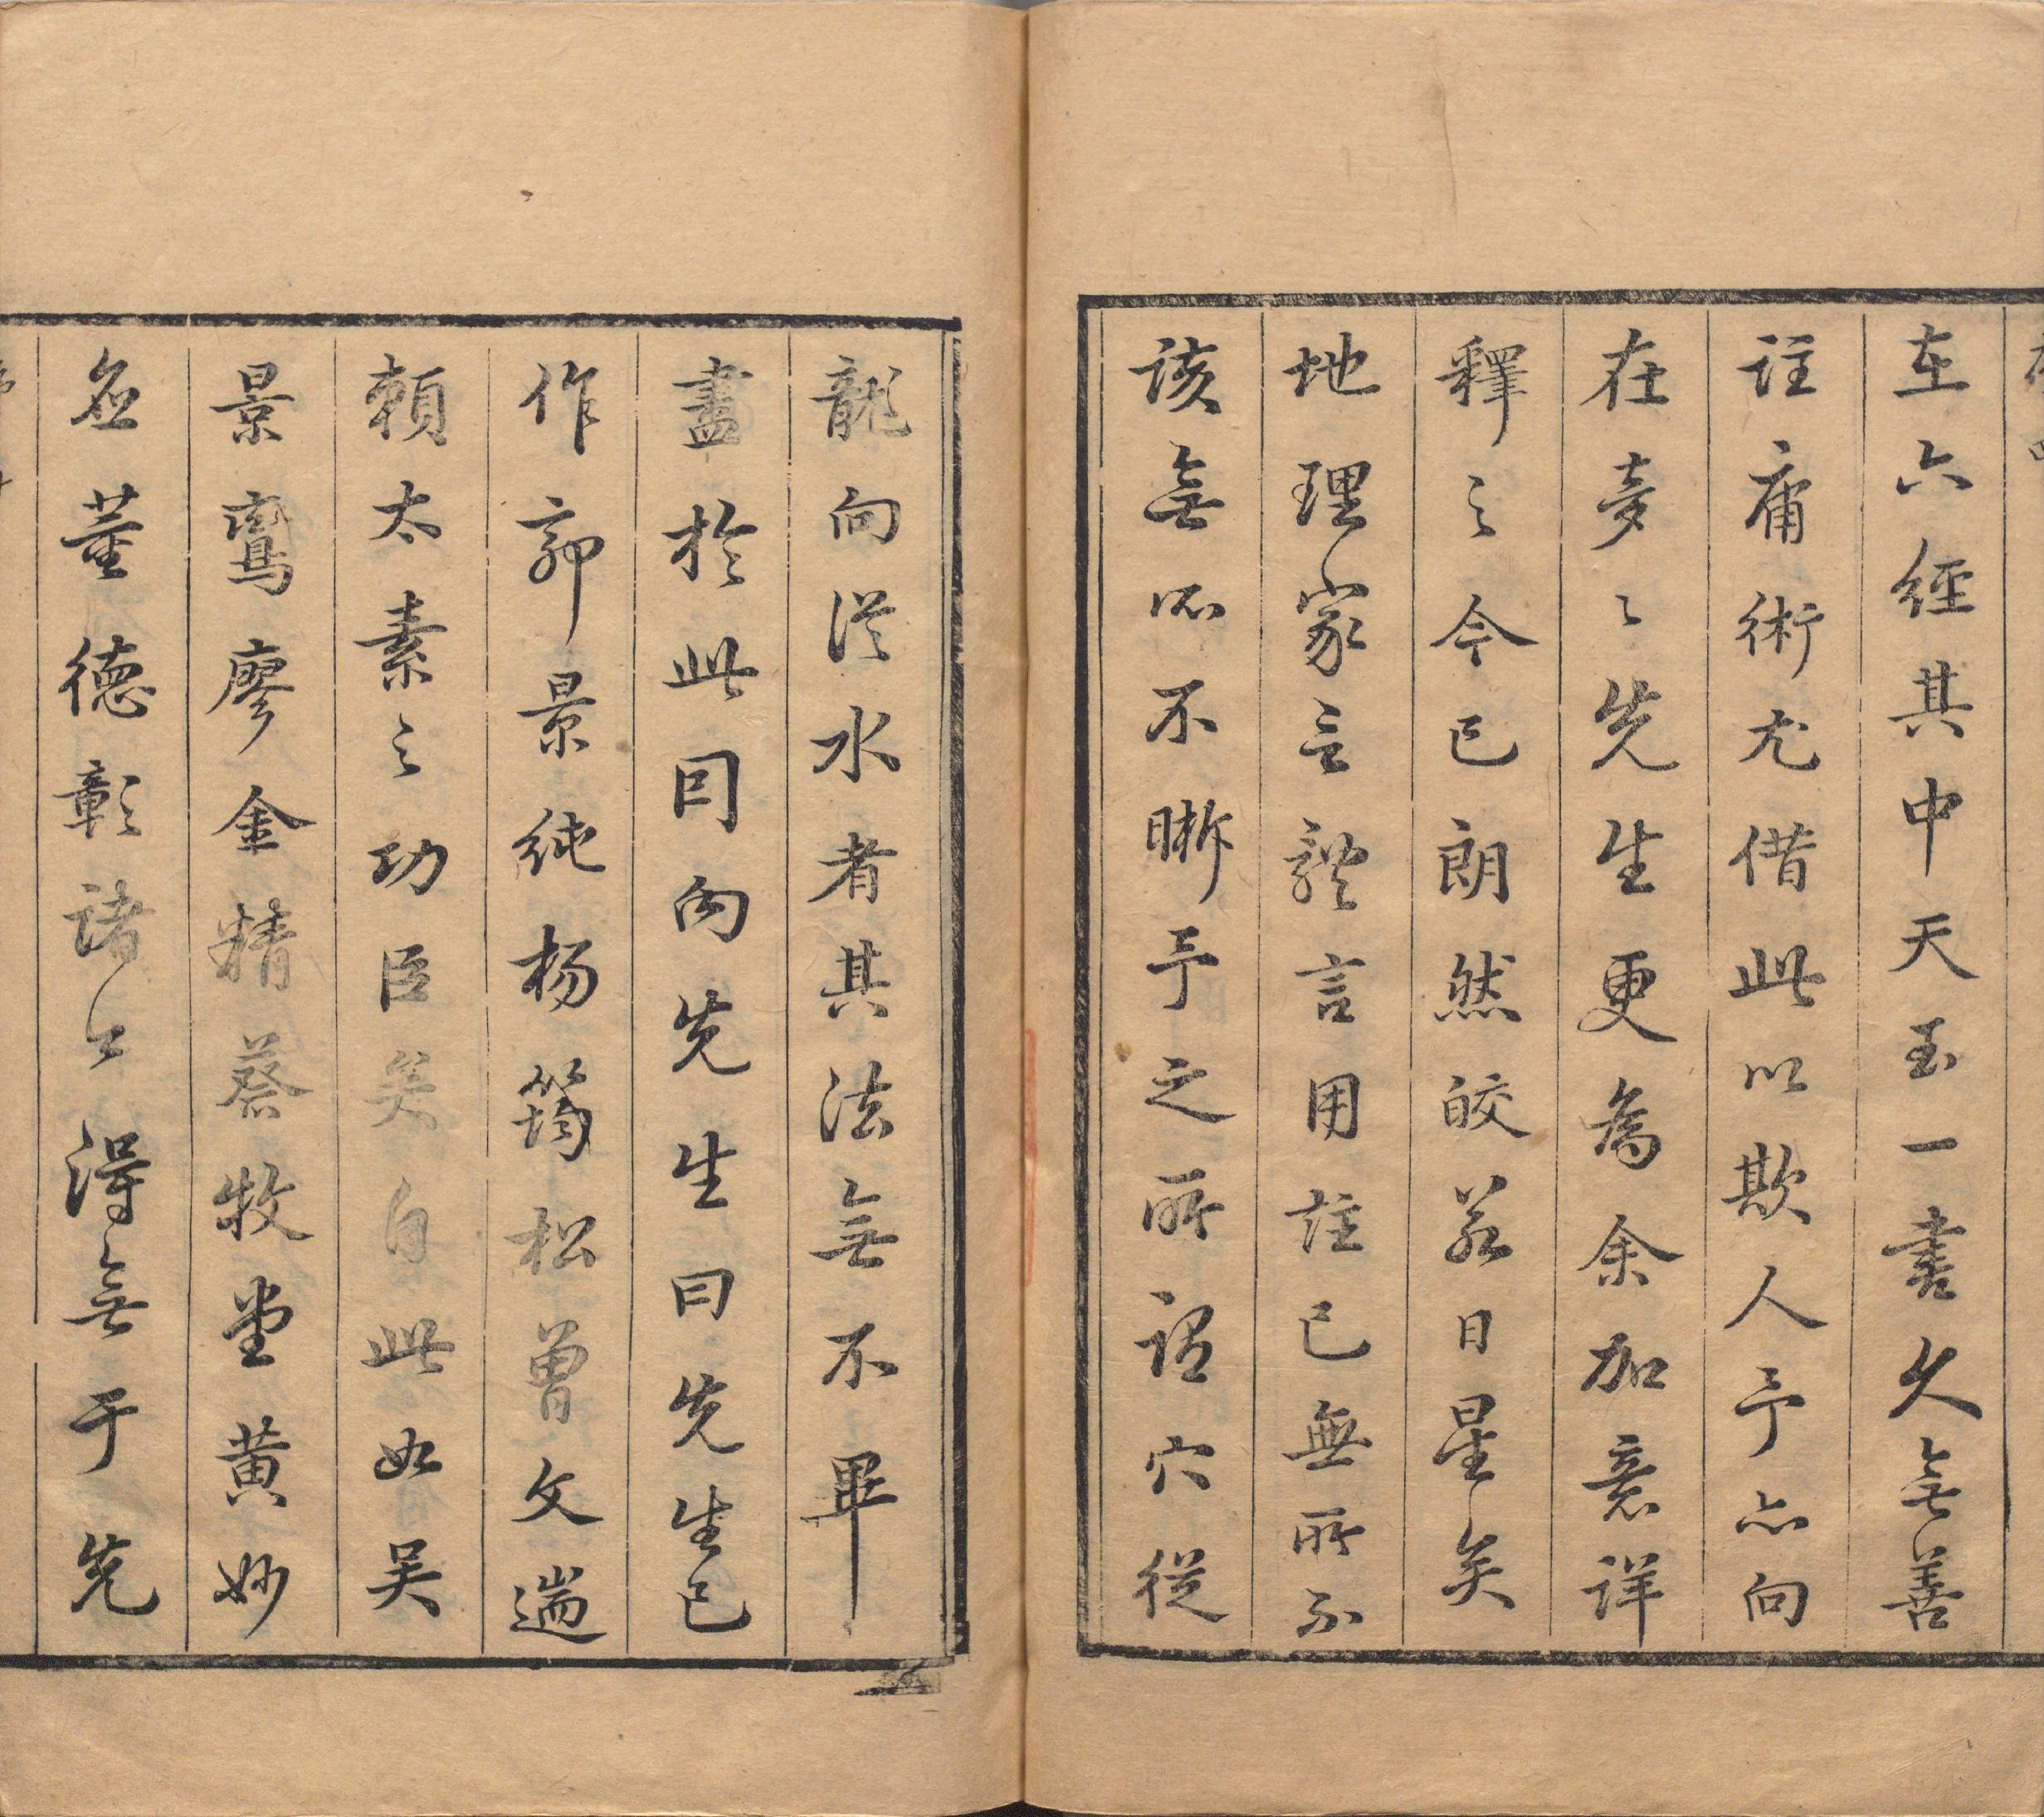 在六經其中天玉一書久無善
註庸術尤借此以欺人予亦向
在夢〻先生更為余加意詳
釋之今已朗然皎若日星矣
地理家言體言用註已無所不
該無所不晰予之所謂穴從
龍向從水者其法無不畢
盡於此因向先生曰先生已
作郭景純楊筠松曾文遄
賴太素之功臣矣自此如吳
景鸞廖金精蔡牧堂黃妙
應董德彰諸公得無于先